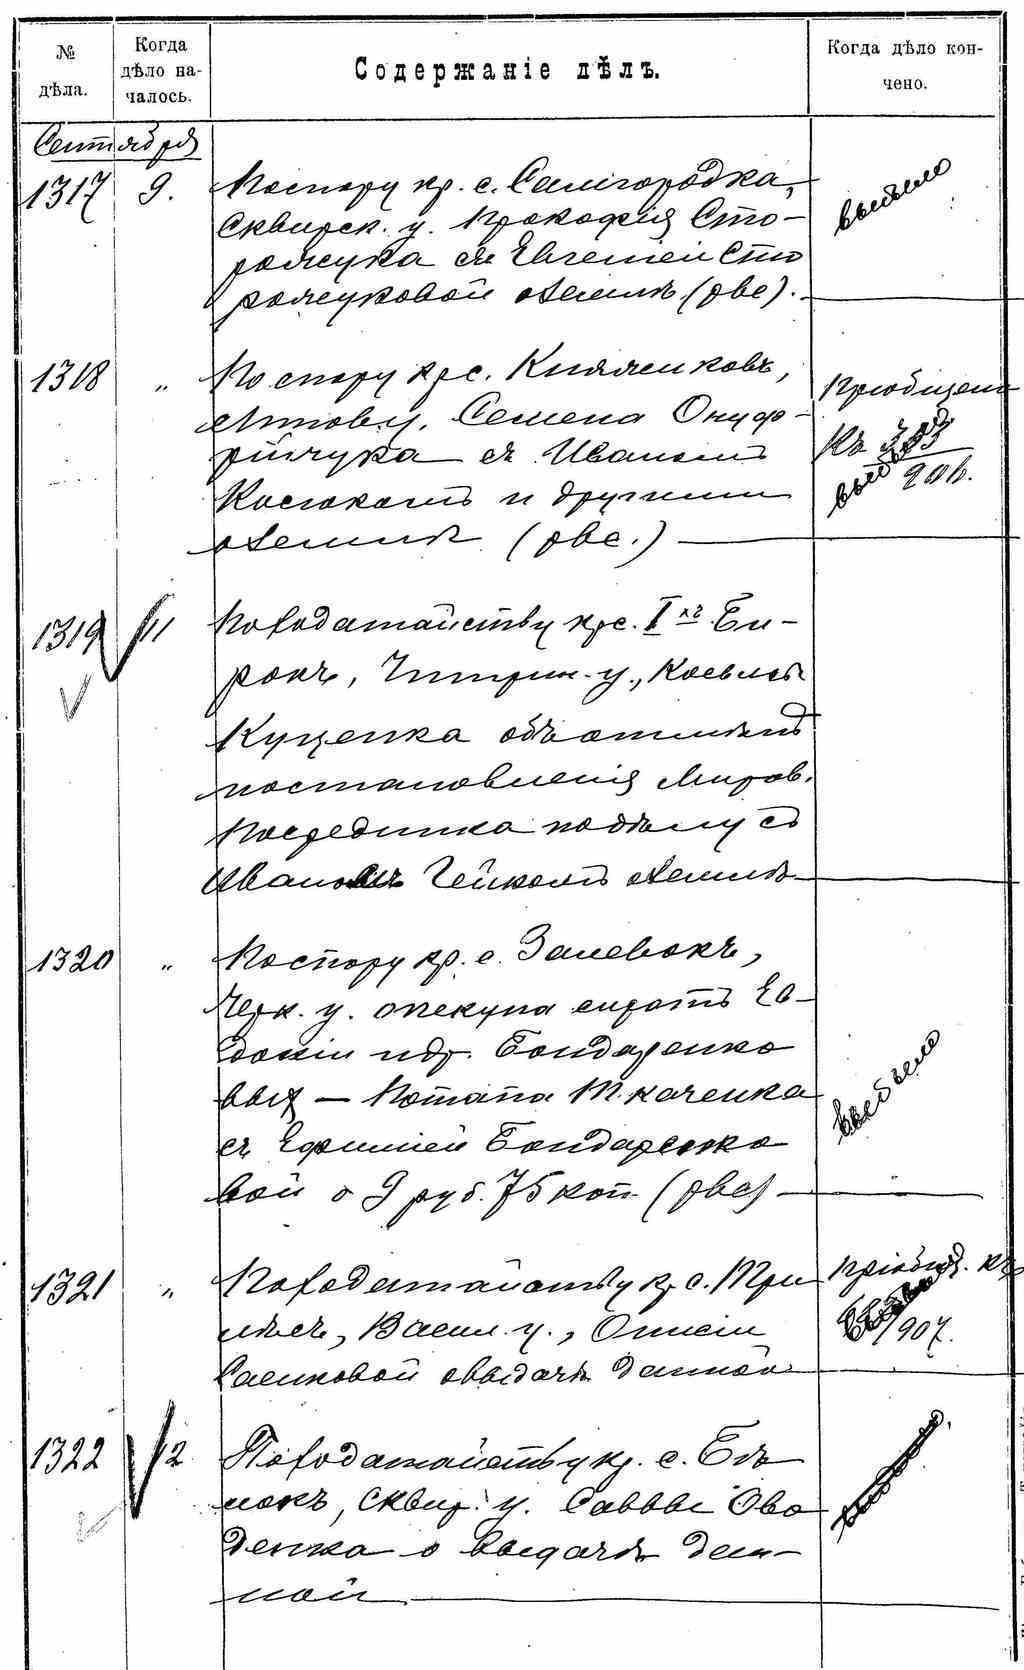 № дѣла.
Когда дѣло на-
чалось.
Содержаніе дѣлъ.
Когда дѣло кон-
чено.
Сентября
1317 9. По спору кр. с. Самгородка,
Сквирск. у. Прокофія Сто-
рожука съ Евгеніей Сто
рожуковой о землѣ (рве).
выбыло
1318 „ По спору крс. Княжиковъ,
Липовец. Семена Онуф-
рійчука съ Иваномъ
Косюкомъ и другими
о землѣ (рве.)
Пріобщено
къ 333
906.
выбыло
1319 11 По ходатайству крс. I хъ Би-
рокъ, Чигирин. у.,
Куценка объ отмѣнѣ
постановленія Миров.
Посредника по дѣлу съ
Иваномъ Гейкомъ о землѣ
1320 „ По спору кр. с. Залевокъ,
Черк. у. опекуна сиротъ Ев-
докіи и др. Бондаренко
выхъ — Потапа Ткаченка
съ Ефиміей Бондаренко
вой о 9 руб. 75 коп. (рве)
выбыло
1321 „ По ходатайству кр. с. Три
лѣсъ, Васил. у., Онисіи
о выдачѣ данной
Пріобщ. къ
/907.
1322 12 По ходатайству кр. с. Бѣ
локъ, Сквир. у. Саввы Ово
денка о выдачѣ дан-
ной
выбыло